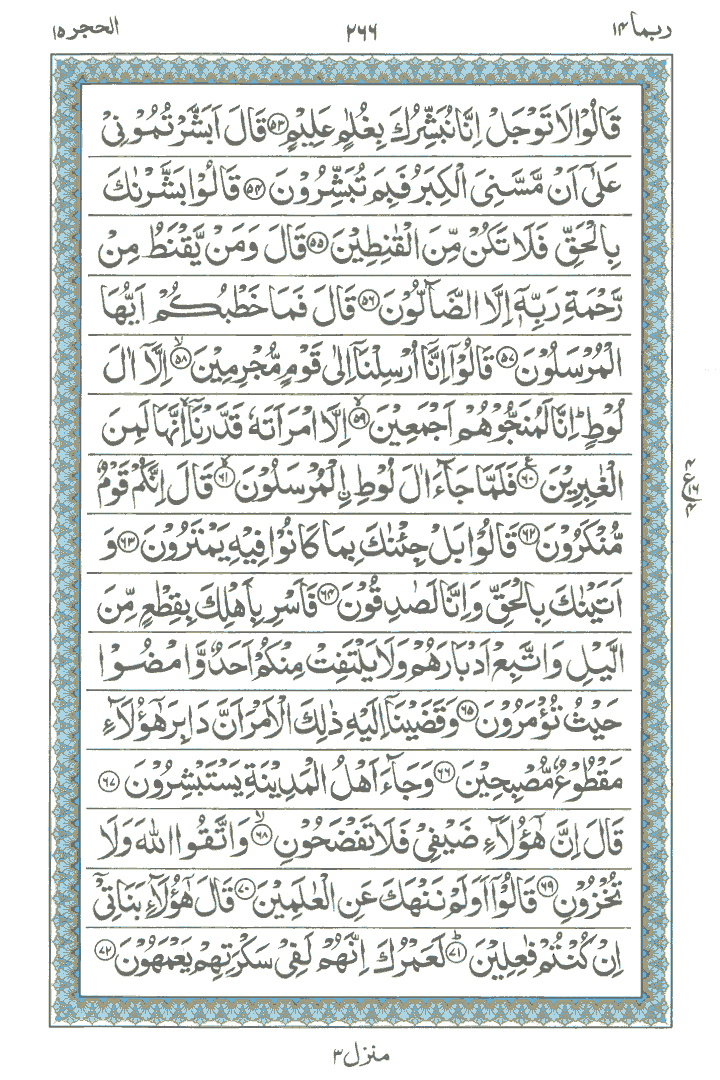 ربما ١٤ ٢٦٦ الحجر ١٥
قَالُوْا لَا تَوْجَلْ اِنَّا نُبَشِّرُكَ بِغُلٰمٍ عَلِيْمٍ ﴿۵۳﴾ قَالَ اَبَشَّرْتُمُوْنِيْ
عَلٰۤى اَنْ مَّسَّنِيَ الْكِبَرُ فَبِمَ تُبَشِّرُوْنَ ﴿۵۴﴾ قَالُوْا بَشَّرْنٰكَ
بِالْحَقِّ فَلَا تَكُنْ مِّنَ الْقٰنِطِيْنَ ﴿۵۵﴾ قَالَ وَمَنْ يَّقْنَطُ مِنْ
رَّحْمَةِ رَبِّهٖۤ اِلَّا الضَّآلُّوْنَ ﴿۵۶﴾ قَالَ فَمَا خَطْبُكُمْ اَيُّهَا
الْمُرْسَلُوْنَ ﴿۵۷﴾ قَالُوْۤا اِنَّاۤ اُرْسِلْنَاۤ اِلٰى قَوْمٍ مُّجْرِمِيْنَ ﴿۵۸﴾ۙ اِلَّاۤ اٰلَ
لُوْطٍ ؕ اِنَّا لَمُنَجُّوْهُمْ اَجْمَعِيْنَ ﴿۵۹﴾ۙ اِلَّا امْرَاَتَهٗ قَدَّرْنَاۤ ۙ اِنَّهَا لَمِنَ
الْغٰبِرِيْنَ ﴿۶۰﴾ فَلَمَّا جَآءَ اٰلَ لُوْطِ ۨالْمُرْسَلُوْنَ ﴿۶۱﴾ۙ قَالَ اِنَّكُمْ قَوْمٌ
مُّنْكَرُوْنَ ﴿۶۲﴾ قَالُوْا بَلْ جِئْنٰكَ بِمَا كَانُوْا فِيْهِ يَمْتَرُوْنَ ﴿۶۳﴾ وَ
اَتَيْنٰكَ بِالْحَقِّ وَاِنَّا لَصٰدِقُوْنَ ﴿۶۴﴾ فَاَسْرِ بِاَهْلِكَ بِقِطْعٍ مِّنَ
الَّيْلِ وَاتَّبِعْ اَدْبَارَهُمْ وَلَا يَلْتَفِتْ مِنْكُمْ اَحَدٌ وَّامْضُوْا
حَيْثُ تُؤْمَرُوْنَ ﴿۶۵﴾ وَقَضَيْنَاۤ اِلَيْهِ ذٰلِكَ الْاَمْرَ اَنَّ دَابِرَ هٰۤؤُلَآءِ
مَقْطُوْعٌ مُّصْبِحِيْنَ ﴿۶۶﴾ وَجَآءَ اَهْلُ الْمَدِيْنَةِ يَسْتَبْشِرُوْنَ ﴿۶۷﴾
قَالَ اِنَّ هٰۤؤُلَآءِ ضَيْفِيْ فَلَا تَفْضَحُوْنِ ﴿۶۸﴾ۙ وَاتَّقُوا اللّٰهَ وَلَا
تُخْزُوْنِ ﴿۶۹﴾ قَالُوْۤا اَوَلَمْ نَنْهَكَ عَنِ الْعٰلَمِيْنَ ﴿۷۰﴾ قَالَ هٰۤؤُلَآءِ بَنٰتِيْۤ
اِنْ كُنْتُمْ فٰعِلِيْنَ ﴿۷۱﴾ؕ لَعَمْرُكَ اِنَّهُمْ لَفِيْ سَكْرَتِهِمْ يَعْمَهُوْنَ ﴿۷۲﴾
منزل ٣